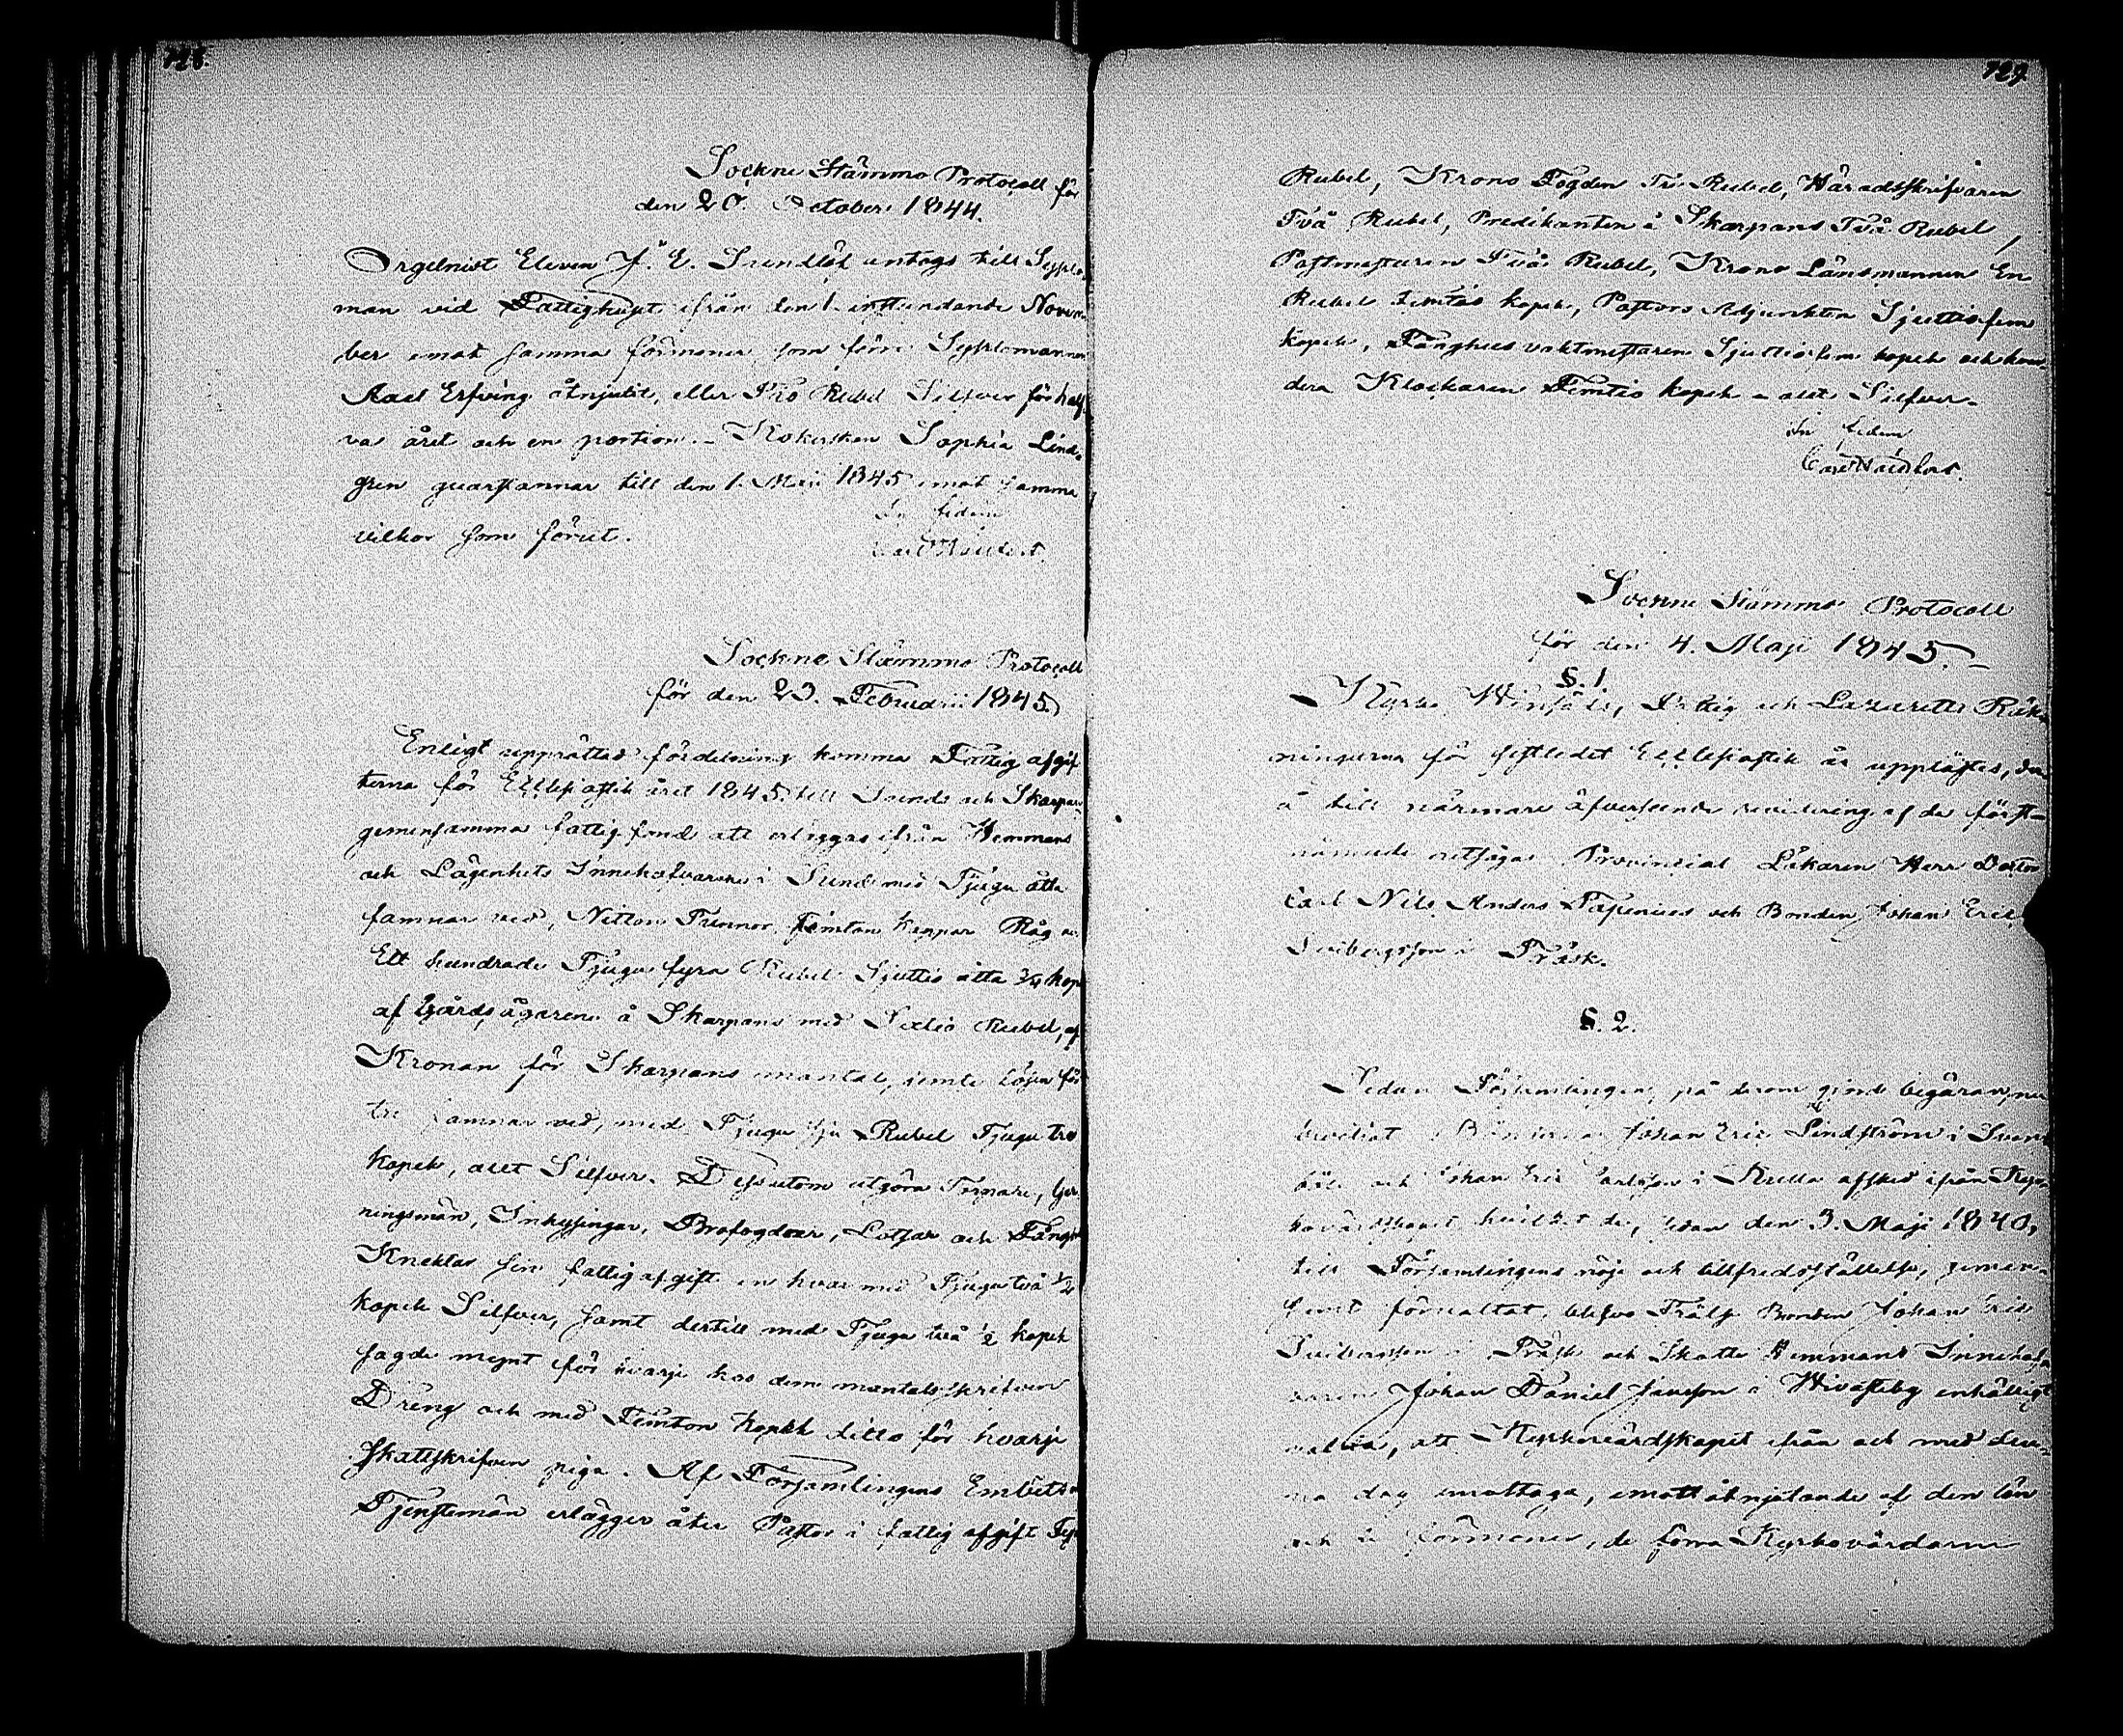 728.
Sockne Stämmo Protocoll för
den 20. October 1844.
Orgelnist Eleven J. E. Sundlöf antogs till Syßlo-
man vid Fattighuset ifrån den 1. inst­undande Novem-
ber emot samma förmoner som förre Syßlomannen
Axel Erfving åtnjutit, eller Tio Rubel Silfver för half-
va året och en portion. – Kokerskan Sophia Lind-
gren quarstannar till den 1. Maji 1845 emot samma
vilkor som förut.
In fidem
Carl
Sockne Stämmo Protocoll
för den 23. Februarii 1845.
Enligt upprättad fördelning komma Fattig afgif-
terna för Ecclesiastik året 1845 till Sunds och Skarpans
gemensamma fattig fond att erläggas ifrån Hemmans
och Lägenhets Innehafvarne i Sund med Tjugu åtta
famnar ved, Nitton Tunnor femton kappar Råg och
Ett hundrade Tjugu fyra Rubel Sjuttio åtta 3/4 kop.
af Gårdsägarene å Skarpans med Sextio Rubel, af
Kronan för Skarpans mantal, jemte lösen för
tre famnar ved, med Tjugu sju Rubel Tjugu tre
kopek, allt Silfver. Dessutom utgöra Torpare, Ger-
ningsmän, Inhysingar, Brofogdar, Lotsar och Fång-
Knektar sin fattig afgift en hvar med Tjugu två 1/2
kopek Silfver, samt dertill med Tjugu två 1/2 kopek
sagde mynt för hvarje hos dem mantalsskrifven
Dräng och med Femton kopek ditto för hvarje
skattskrifven piga. Af Församlingens Embets o
Tjenstemän erlägger åter Pastor i fattig afgift Fyra
729.
Rubel, Krono Fogden Tre Rubel, Häradsskrifvaren
Två Rubel, Predikanten å Skarpans Två Rubel,
Postmästaren Två Rubel, Krono Länsmannen En
Rubel femtio kopek, Pastors Adjunkten Sjuttiofem
kopek, Fånghus vaktmästaren Sjuttiofem kopek och
Klockaren Femtio kopek – allt Silfver. –
In fidem
Carl
Sockne Stämmo Protocoll
för den 4. Maji 1845. –
§. 1.
Kyrko Winfalls, Fattig och Lazaretts Räk-
ningarna för sistledet Ecclesiastik år upplästes, da
å till närmare öfverseende revidering af de först-
nämnde utsågos Provincial Läkaren Herr Doctor
Carl Nils Anders och Bonden Johan Eric
Svibergsson i Träsk.
§. 2.
Sedan Församlingen, på derom gjord begäran, nu
beviljat Bönderna Johan Eric Lindström i Svens-
böle och Johan Eric Carlsson i Kulla afsked ifrån Kyr-
kovärdskapet hvilket de, sedan den 3. Maji 1840,
till Församlingens nöje och tillfredsställelse, gemen-
samt förvaltat, blefvo Frälse Bonden Johan Eric
Svibergsson i Träsk och Skatte Hemmans Innehaf-
varen Johan Daniel Jansson i Hivasteby enhälligt
valda, att Kyrkovärdskapet ifrån och med den-
na dag emottaga, emot åtnjutande af den lön
och de förmoner, de förra Kyrkovärdarne